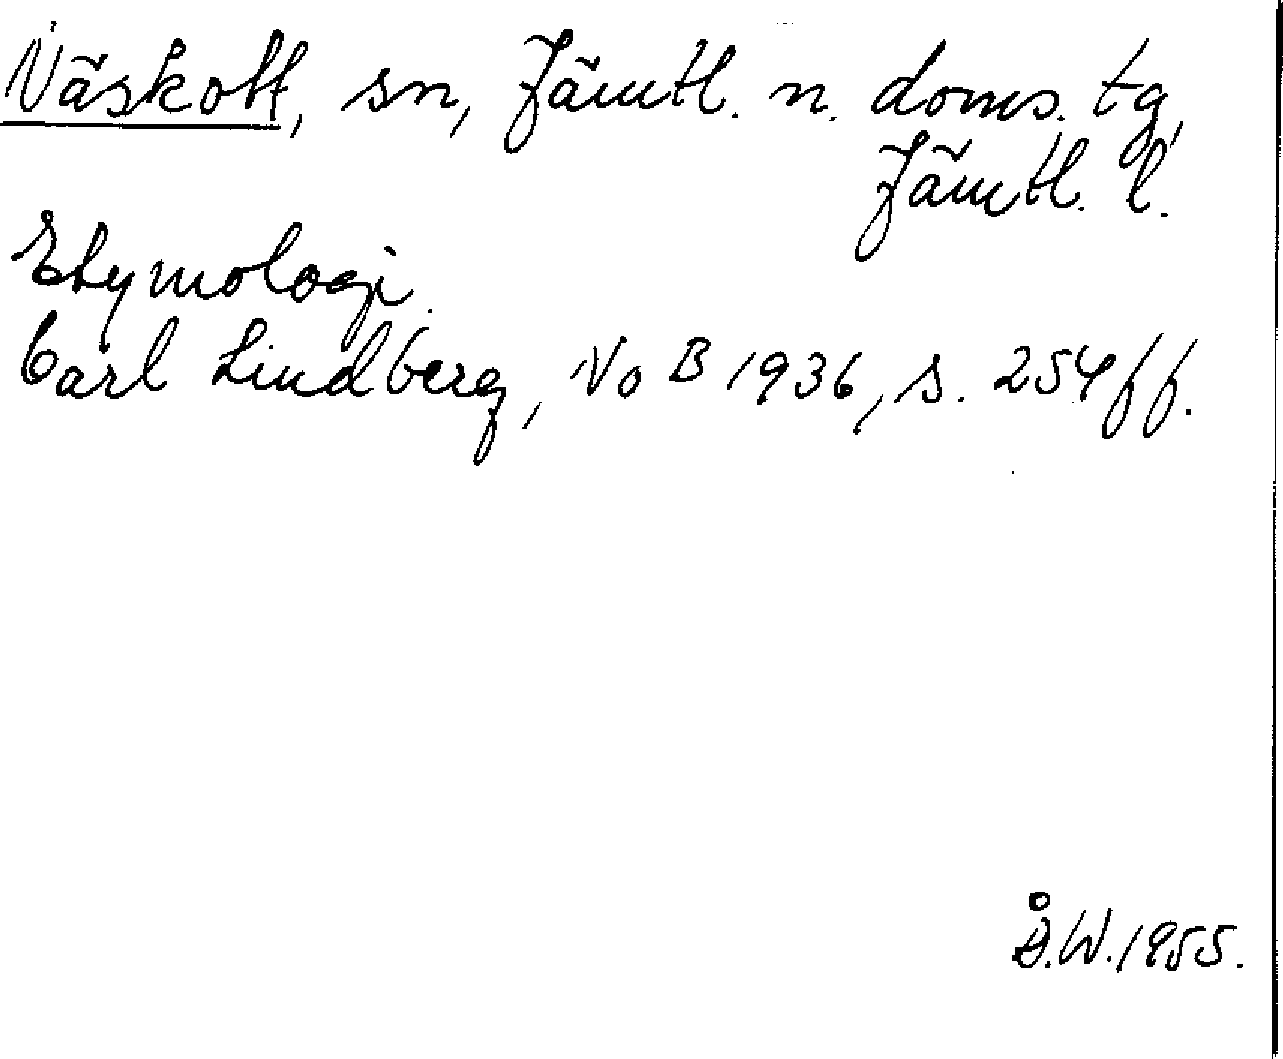 Näskott, sn, Jämtl. n. doms. tg,
Jämtl. l.
Etymologi.
Carl Lindberg, No B 1936, s. 254 ff.
Å.W. 1955.